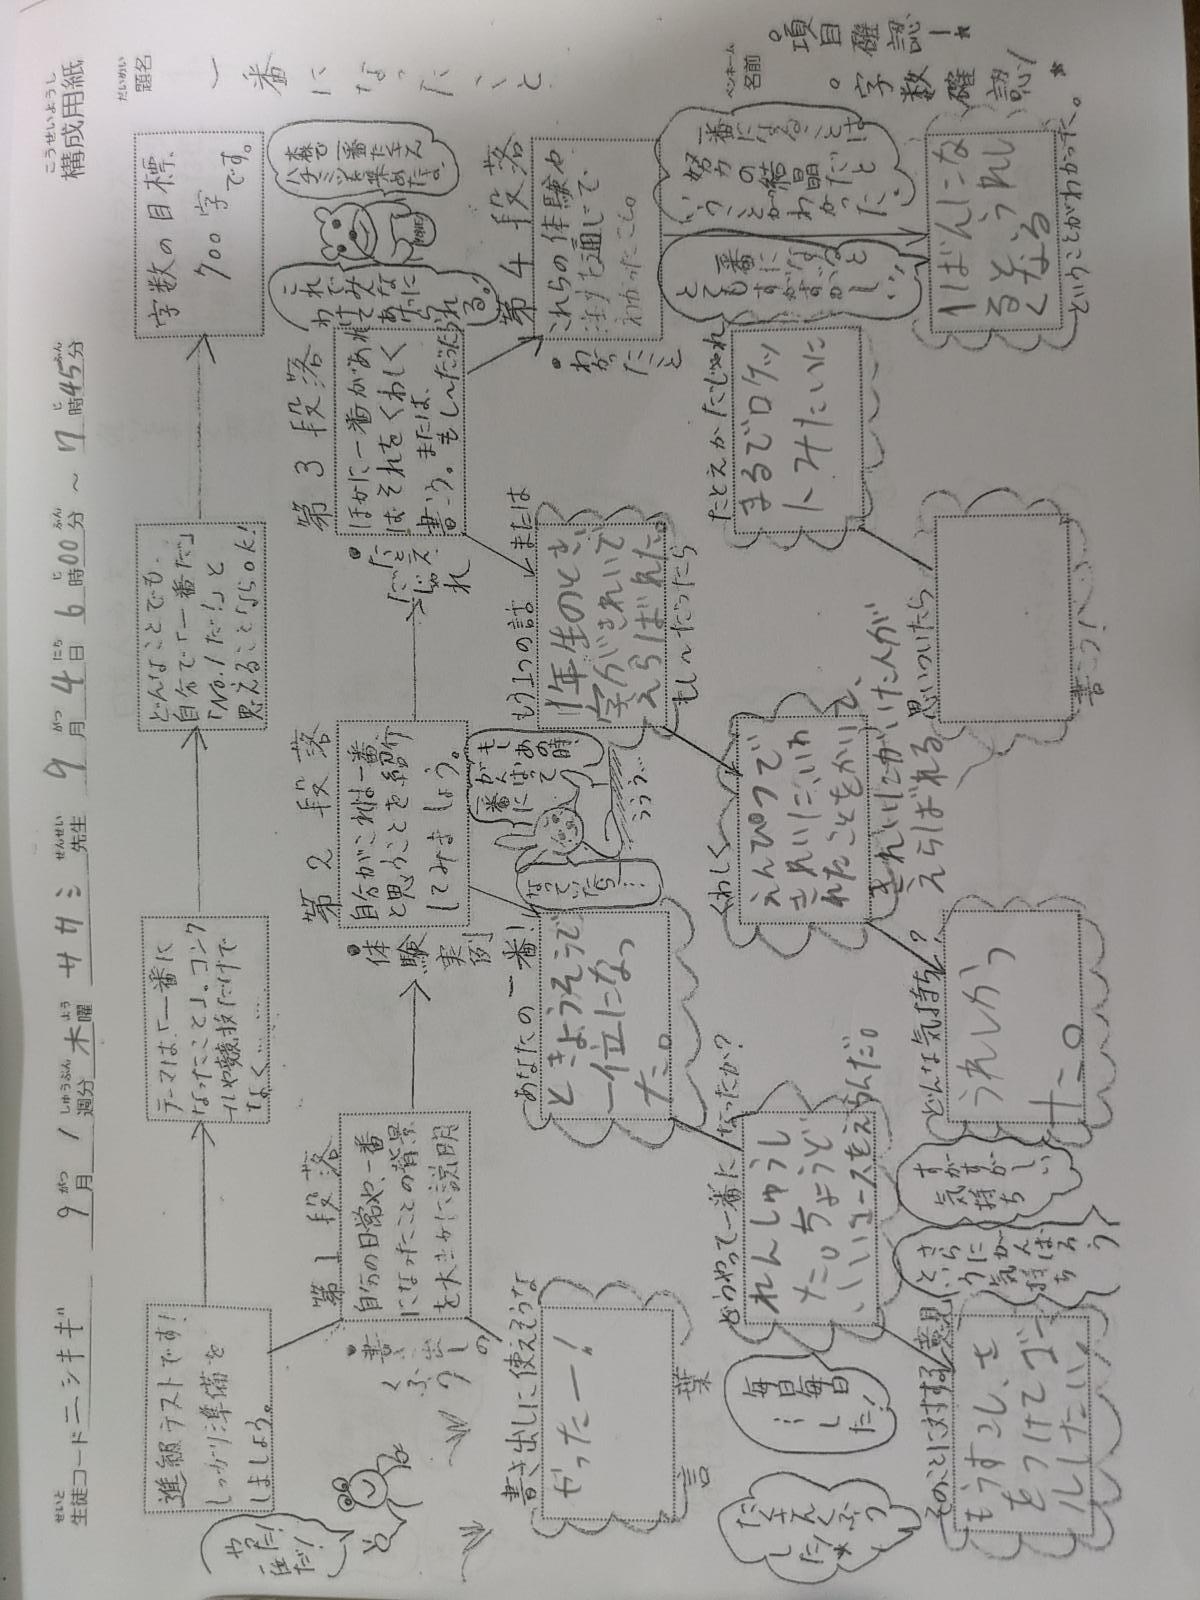 構成用紙
こうせいようし
生徒コード ニシキギ 9月1週分 木曜 サカミ先生 9月4日6時00分～7時45分
題名
だいめい
一番になったこと
ペンネーム
名前
。項目確認！*
。字数確認！*
進級テストです！
しっかり準備を
しましょう。
テーマは、「一番に
なったこと」。コンク
ールや競技だけで
なく……
どんなことでも、
自分で「一番だ」
「No.1だ！」と
思えることならOK！
字数の目標、
700字
です。
第1段落
自分の日常や、一番
になったことの背景
を大まかに説明
・書き出しの
くふう
第2段落
自分がこれは一番
と思うことを紹介
してみましょう。
・体験実例
第3段落
ほかに一番があれ
ばそれをくわしく
書こう。または、
もし～だったら
・たとえ
だじゃれ
第4段落
これらの体験や
を通じて、
わかったこと。
・わかったこと
これでみん
なあっ
られる。
森で一番たくさん
ハチミツを集めたよ。
HONEY
もし
あの時、
一番に
がんばって
なっていたら
……
ううう…
書き出しに使えそうな
言葉
やったー！
あなたの一番！
ときょうそうで
一位になっ
た。
もう1つの話 または
もし～だったら
1年生のとき、
字がきれいで
えらばれた。
一番になることは
努力の結晶だと
いうことがわかった
一番になる
とてもすがすがし
どうやって一番になったか？
れんしゅうし
た。ちょうど
いいコースをえらんだ。
毎日毎日
…
した！
たくさんくふう
した！
くわしく
えんぴつで
きれいにいわ
れたことをかいて、
きれいにかいた人が
えらばれる
たとえかだじゃれ
まるでロケッ
トみたいに
1ばんにな
ると、うれし
くなる
ということがわかった。
そのことに対する意見
もうすこし、き
をつけてゴー
ルしたい
どんな気持ち？
うれしかっ
た。
すがすがしい
気持ち
さらに
がんばろ
う
という気持ち
思いついたら
書こう！